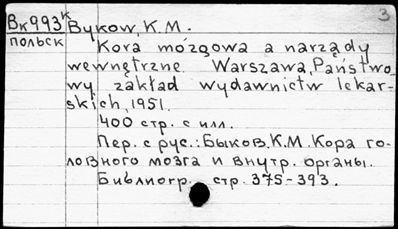 Вк993к Bykow, K.M. 3
польск Kora mózgowa a narządy
wewnętrzne. Warszawa, Państwo-
wy zakład wydawnictw lekar-
skich, 1951.
400 стр. с илл.
Пер. с рус.: Быков. К.М. Кора го-
ловного мозга и внутр. органы.
Библиогр. стр. 375-393.